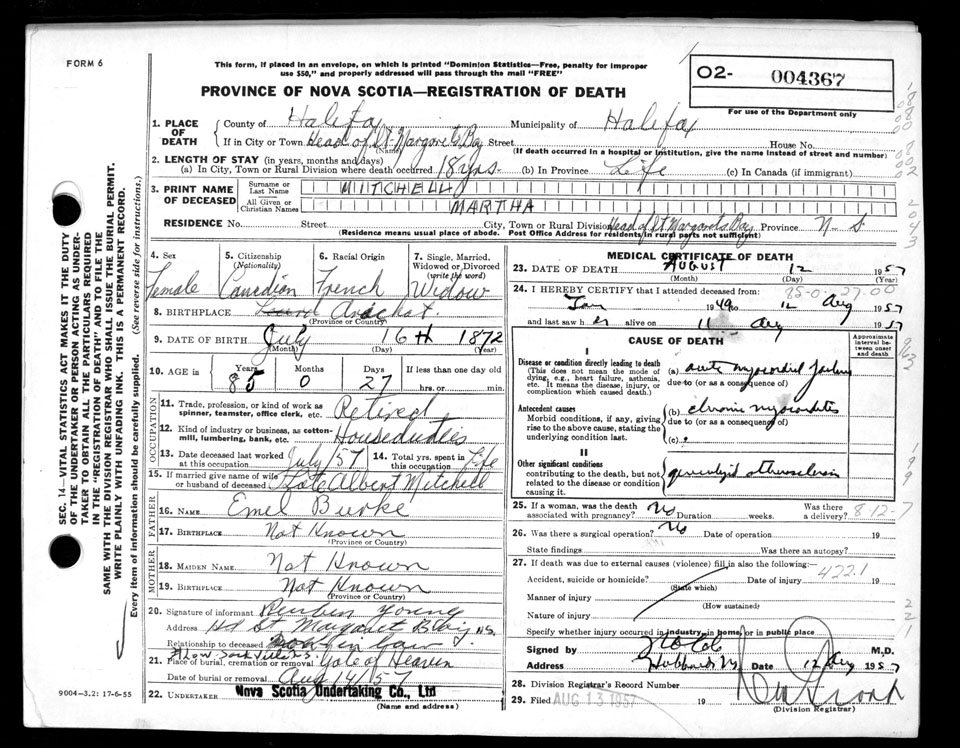 FORM 6
This form, if placed in an envelope, on which is printed "Dominion Statistics—Free, penalty for improper
use $50," and properly addressed will pass through the mail "FREE"
02- 004367
For use of the Department only
PROVINCE OF NOVA SCOTIA—REGISTRATION OF DEATH
1. PLACE OF DEATH County of Halifax Municipality of Halifax
If in City or Town Head of St. Margarets Bay Street House No.
(Name) (If death occurred in a hospital or institution, give the name instead of street and number)
2. LENGTH OF STAY (in years, months and days)
(a) In City, Town or Rural Division where death occurred 18 yrs. (b) In Province Life (c) In Canada (if immigrant)
3. PRINT NAME OF DECEASED Surname or Last Name MITCHELL
All Given or Christian Names MARTHA
RESIDENCE No. Street City, Town or Rural Division Head of St Margarets Bay Province N. S.
(Residence means usual place of abode. Post Office Address for residents in rural parts not sufficient)
4. Sex Female
5. Citizenship (Nationality) Canadian
6. Racial Origin French
7. Single, Married, Widowed or Divorced (write the word) Widow
8. BIRTHPLACE Arichat.
(Province or Country)
9. DATE OF BIRTH July 16th 1872
(Month) (Day) (Year)
10. AGE in Years 85 Months 0 Days 27 If less than one day old
hrs. or min.
OCCUPATION
11. Trade, profession, or kind of work as spinner, teamster, office clerk, etc. Retired
12. Kind of industry or business, as cotton-mill, lumbering, bank, etc. Houseduties
13. Date deceased last worked at this occupation July/57 14. Total yrs. spent in this occupation Life
15. If married give name of wife or husband of deceased Late Albert Mitchell
FATHER
16. NAME Emel Burke
17. BIRTHPLACE Not Known
(Province or Country)
MOTHER
18. MAIDEN NAME Not Known
19. BIRTHPLACE Not Known
(Province or Country)
20. Signature of informant Reuben Young
Address Hd St Margaret Bay NS.
Relationship to deceased
21. Place of burial, cremation or removal Gate of Heaven
Date of burial Aug 14/57
22. UNDERTAKER Nova Scotia Undertaking Co., Ltd
(Name and address)
MEDICAL CERTIFICATE OF DEATH
23. DATE OF DEATH August 12 1957
(Month) (Day) (Year)
85-0-27.00
24. I HEREBY CERTIFY that I attended deceased from
Jan 1949 to 12 Aug 1957
and last saw her alive on 11 Aug 1957
CAUSE OF DEATH
Approximate interval between onset and death
I
Disease or condition directly leading to death
(This does not mean the mode of dying, e.g., heart failure, asthenia, etc. It means the disease, injury, or complication which caused death.)
(a) acute myocardial failure
due to (or as a consequence of)
Antecedent causes
Morbid conditions, if any, giving rise to the above cause, stating the underlying condition last.
(b) chronic myocarditis
due to (or as a consequence of)
(c)
II
Other significant conditions
contributing to the death, but not related to the disease or condition causing it.
25. If a woman, was the death associated with pregnancy? No Duration weeks. Was there a delivery? 8-12-7
26. Was there a surgical operation? No Date of operation 19
State findings Was there an autopsy?
27. If death was due to external causes (violence) fill in also the following:
Accident, suicide or homicide? Date of injury 422.1 19
(State which)
Manner of injury
(How sustained)
Nature of injury
Specify whether injury occurred in industry, in home, or in public place
Signed by M.D.
Address Hubbards NS Date 12 Aug 1957
28. Division Registrar's Record Number
29. Filed AUG 13 1957 19
(Division Registrar)
SEC. 14—VITAL STATISTICS ACT MAKES IT THE DUTY
OF THE UNDERTAKER OR PERSON ACTING AS UNDER-
TAKER TO OBTAIN ALL THE PARTICULARS REQUIRED
IN THE "REGISTRATION OF DEATH" AND TO FILE THE
SAME WITH THE DIVISION REGISTRAR WHO SHALL ISSUE THE BURIAL PERMIT.
WRITE PLAINLY WITH UNFADING INK. THIS IS A PERMANENT RECORD.
Every item of information should be carefully supplied. (See reverse side for instructions.)
9004-3.2: 17-6-55